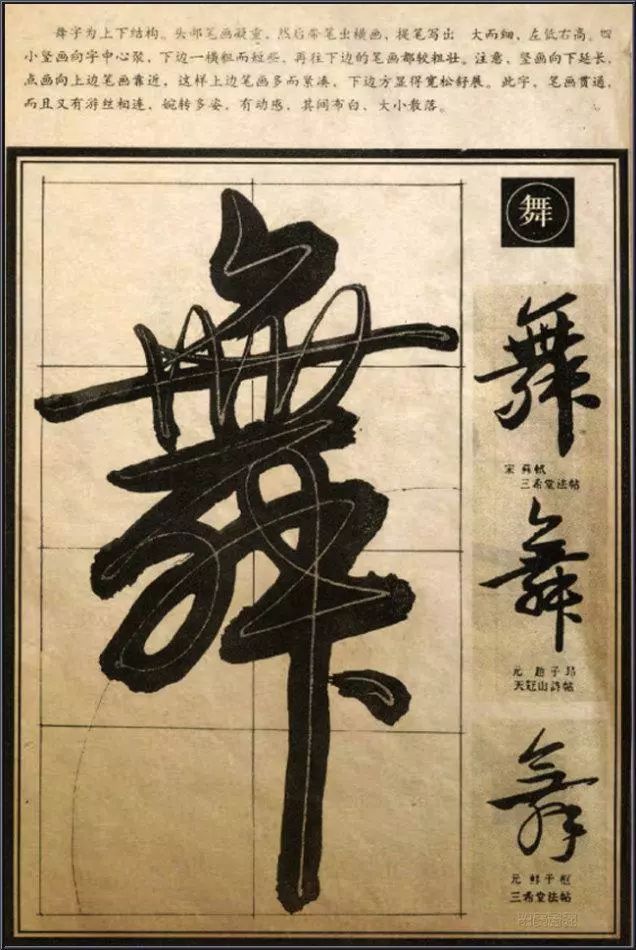 舞字为上下结构。头部笔画凝重，然后带笔出横画，提笔写出 大而细，左低右高。四
小竖画向字中心聚，下边一横粗而短些，再往下边的笔画都较粗壮。注意，竖画向下延长，
点画向上边笔画靠近，这样上边笔画多而紧凑，下边方显得宽松舒展。此字，笔画贯通，
而且又有游丝相连，婉转多姿，有动感，其间布白、大小散落。
舞
舞
舞
宋 蘇軾
三希堂法帖
舞
元 趙子昂
天冠山詩帖
舞
元 鲜于枢
三希堂法帖